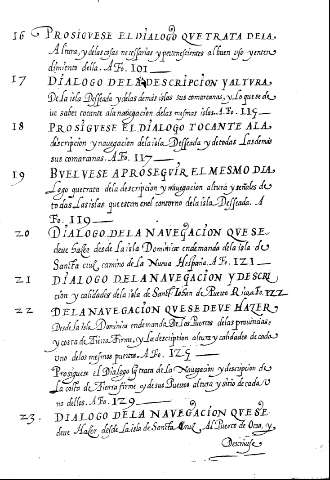 16 PROSIGVESE EL DIALOGO QVE TRATA DE LA
Altura, y de las cosas necessarias y pertenescientes al buen uso y enten
dimiento della. A Fo. 101
17 DIALOGO DE LA DESCRIPCION Y ALTVRA
De la isla Desseada y de las demas islas sus comarcanas, y lo que se de
ve saber tocante a la navegacion de las mesmas islas. A Fo. 115
18 PROSIGVESE EL DIALOGO TOCANTE A LA
discripcion y navegacion de la isla Desseada y de todas las demas
sus comarcanas. A Fo. 117
19 BVELVESE A PROSEGVIR EL MESMO DIA
Logo que trata de la descripcion y navegacion altura y señales de
todas las islas que estan en el contorno de la isla Desseada. A
Fo. 119
20 DIALOGO DE LA NAVEGACION QVE SE
deve hazer desde la isla Dominica en demanda de la isla de
Santa cruz camino de la Nueva Hespaña. A Fo. 121
21 DIALOGO DE LA NAVEGACION Y DESCRI
cion y calidades de la isla de Sant Joban de Puerto Rico. Fo. 122
22 DE LA NAVEGACION QVE SE DEVE HAZER
Desde la isla Dominica en demanda De los Puertos de las provincias,
y costa de Tierra Firme, y La descripcion altura y calidades de cada
uno de los mesmos puertos. A Fo. 125
Prosiguese el Dialogo que trata de la Navegacion y descripcion de
La costa de Tierra firme y de sus Puertos altura y sitio de cada u
no dellos. A Fo. 129
23. DIALOGO DE LA NAVEGACION QVE SE
deve Hazer desde la isla de Santa Cruz, al Puerto de Ocoa, y